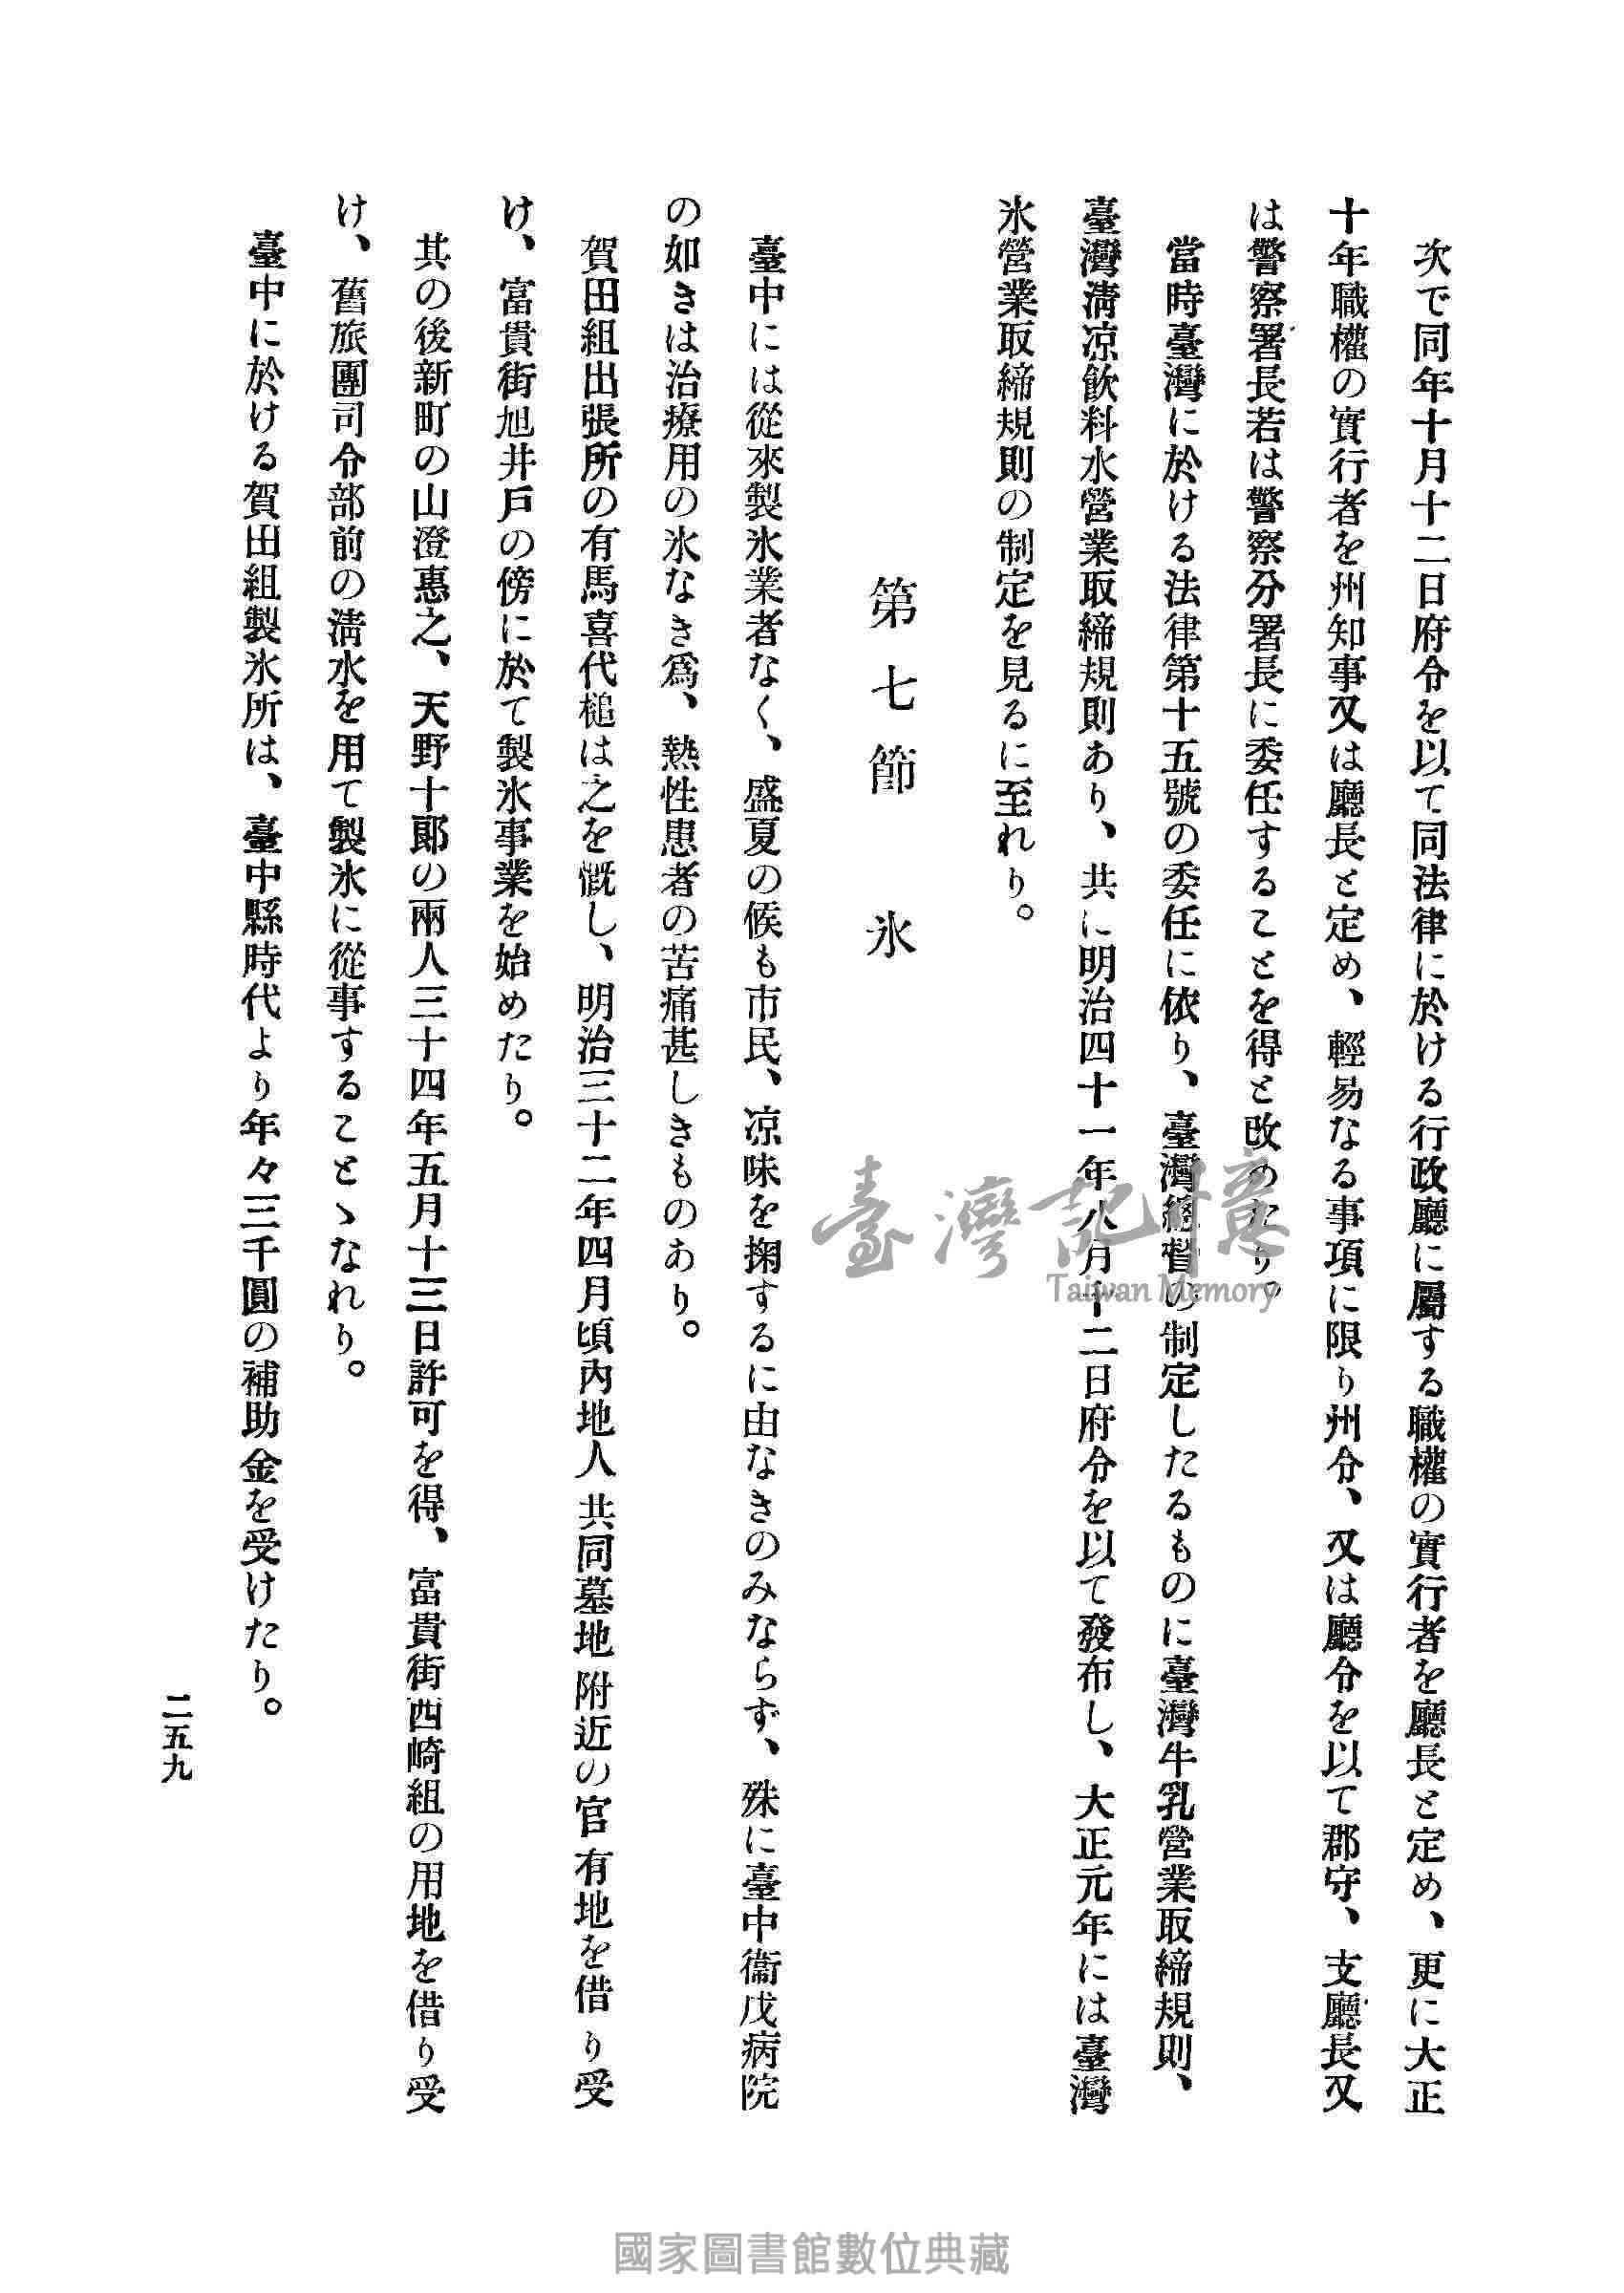 次で同年十月十二日府令を以て同法律に於ける行政廳に屬する職權の實行者を廳長と定め、更に大正
十年職權の實行者を州知事又は廳長と定め、輕易なる事項に限り州令、又は廳令を以て郡守、支廳長又
は警察署長若は警察分署長に委任することを得と改めたり。
當時臺灣に於ける法律第十五號の委任に依り、臺灣總督の制定したるものに臺灣牛乳營業取締規則、
臺灣淸凉飮料水營業取締規則あり、共に明治四十一年八月十二日府令を以て發布し、大正元年には臺灣
氷營業取締規則の制定を見るに至れり。
第七節　氷
臺中には從來製氷業者なく、盛夏の候も市民、凉味を掬するに由なきのみならず、殊に臺中衞戍病院
の如きは治療用の氷なき爲、熱性患者の苦痛甚しきものあり。
賀田組出張所の有馬喜代槌は之を慨し、明治三十二年四月頃內地人共同墓地附近の官有地を借り受
け、富貴街旭井戶の傍に於て製氷事業を始めたり。
其の後新町の山澄惠之、天野十郞の兩人三十四年五月十三日許可を得、富貴街西崎組の用地を借り受
け、舊旅團司令部前の淸水を用て製氷に從事することゝなれり。
臺中に於ける賀田組製氷所は、臺中縣時代より年々三千圓の補助金を受けたり。
二五九
臺灣記憶
Taiwan Memory
國家圖書館數位典藏